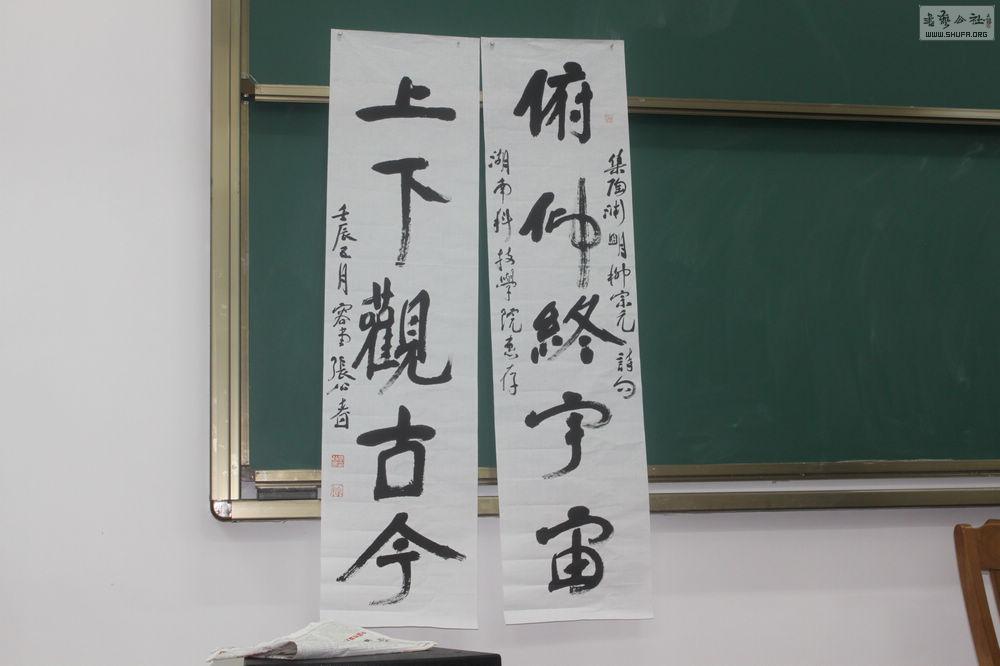 集陶渊明柳宗元詩句
俯仰終宇宙
湖南科技學院惠存
上下觀古今
壬辰五月容堂張公者
書艺公社
WWW.SHUFA.ORG